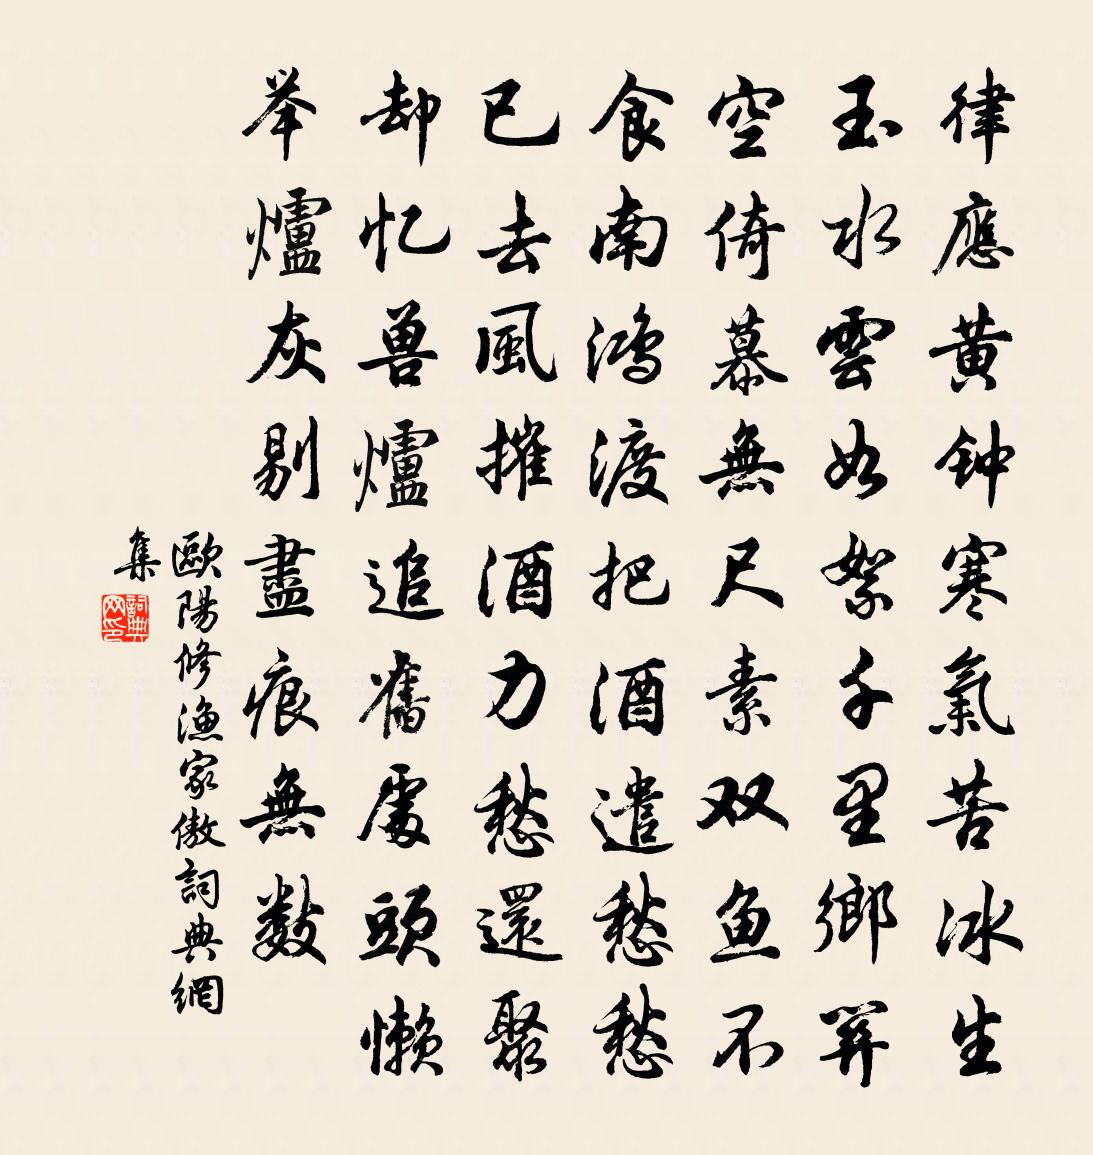 律應黄钟寒氣苦冰生
玉水雲如絮千里鄉关
空倚慕無尺素双鱼不
食南鸿渡把酒遣愁愁
已去風摧酒力愁還聚
却忆兽爐追舊處頭懒
举爐灰剔盡痕無數
歐陽修渔家傲詞典網
集
詞典
网印